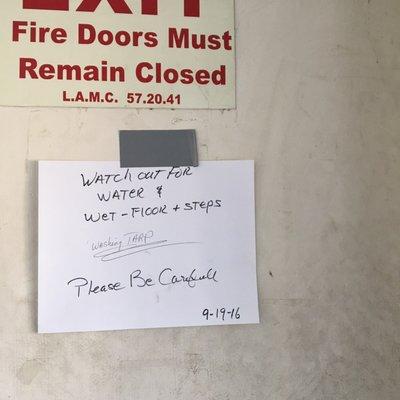 EXIT
Fire Doors Must
Remain Closed
L.A.M.C. 57.20.41
WATCH OUT FOR
WATER &
WET - FLOOR + STEPS
Washing TARP
Please Be Carefull
9-19-16